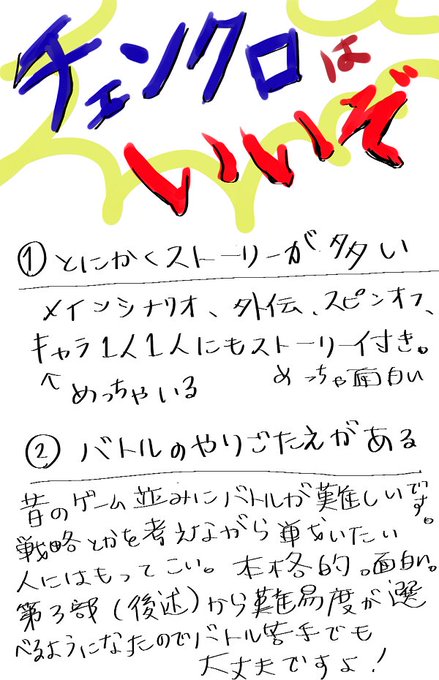 チェンクロは
いいぞ
① とにかくストーリーが多い
メインシナリオ、外伝、スピンオフ、
キャラ1人1人にもストーリー付き。
↑めっちゃいる めっちゃ面白い
② バトルのやりごたえがある
昔のゲーム並みにバトルが難しいです。
戦略とかを考えながら戦いたい
人にはもってこい。本格的。面白い。
第3部(後述)から難易度が選
べるようになたのでバトル苦手でも
大丈夫ですよ!